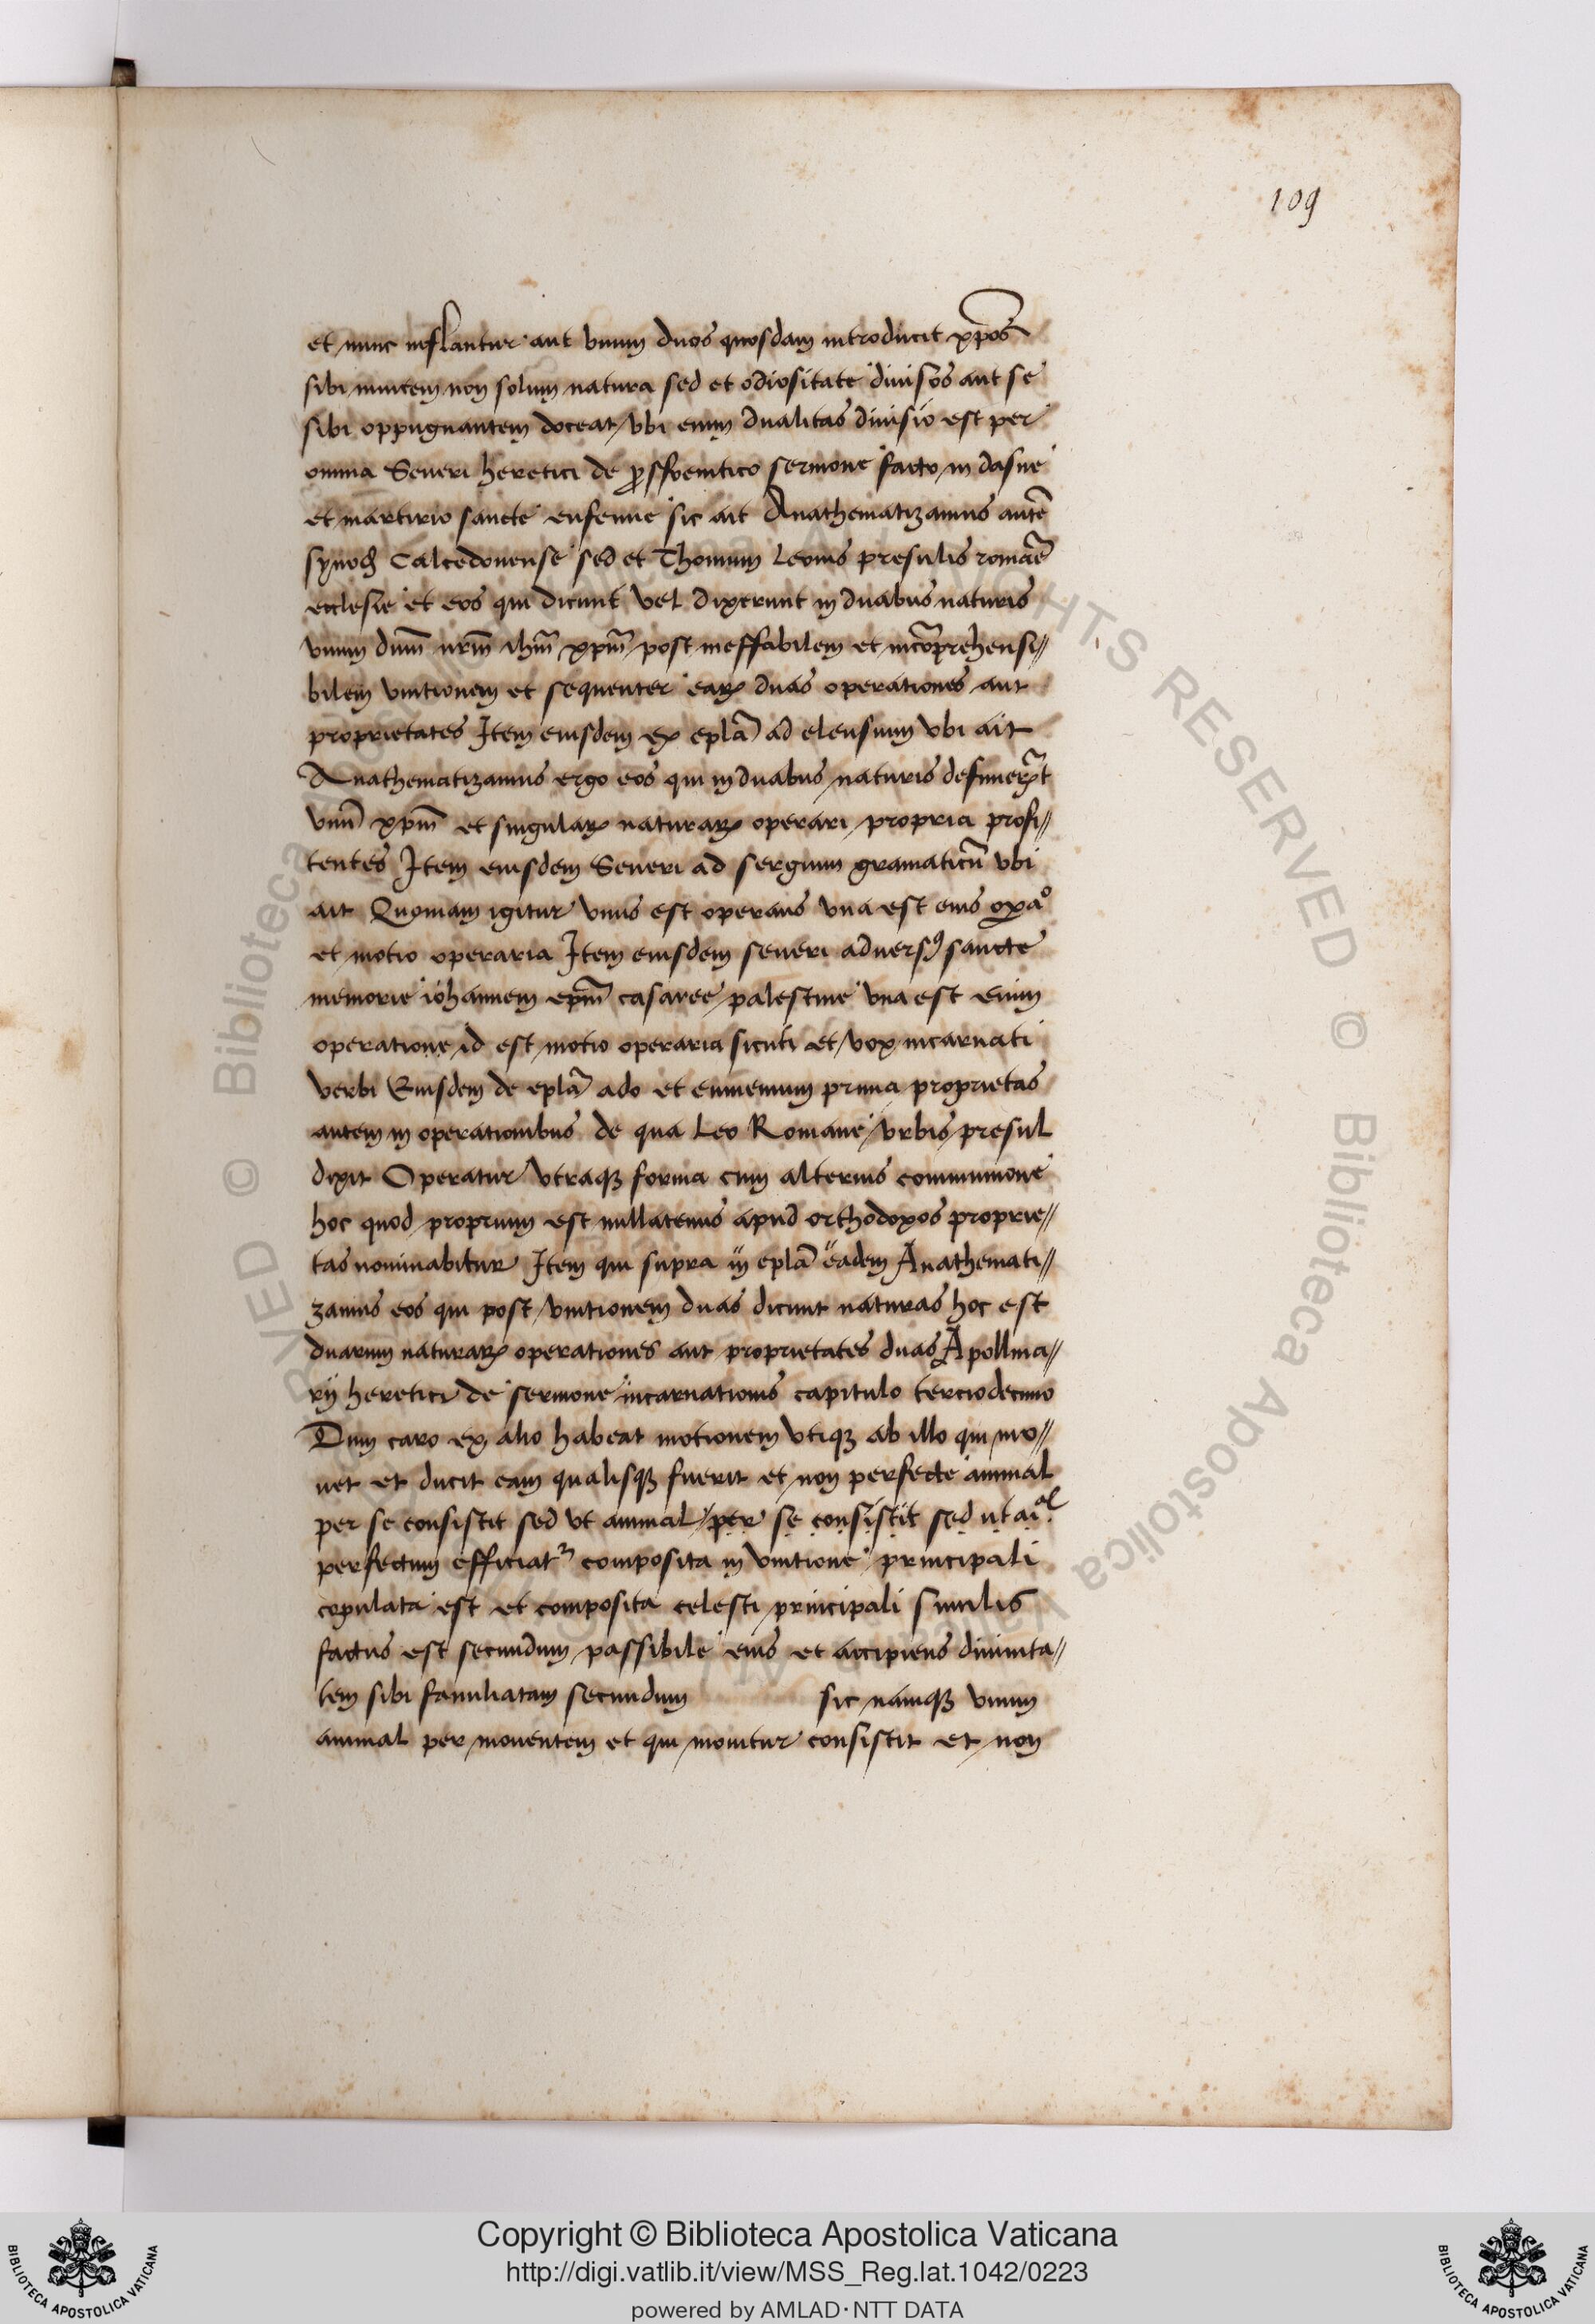 109
et nunc inflantur aut unum duos quosdam introducit xp̄os
sibi inuicem non solum natura sed et odiositate diuisos aut se
sibi oppugnantem doceat vbi enim dualitas diuisio est per
omnia Seueri heretici de sermone facto in dasne
et martirio sancte eufemie sic ait Anathematizamus autē
synod Calcedonense sed et Thomum Leonis presulis romāe
ecclesie et eos qui dicunt vel dixerunt in duabus naturis
vnum dnm̄ nrm̄ ihm̄ xpm̄ post ineffabilem et incōprehensi//
bilem vnitionem et sequenter earꝝ duas operationes aut
proprietates Item eiusdem ex eplā ad eleusium vbi ait
Anathematizamus ergo eos qui in duabus naturis
vnū xpm̄ et singularꝝ naturarꝝ operari propria profi//
tentes Item eiusdem Seueri ad sergium gramaticū vbi
ait Quoniam igitur vnus est operans vna est eius opāo
et motio operaria Item eiusdem seueri aduersꝰ sancte
memorie iohannem epm̄ casaree palestine vna est enim
operatione id est motio operaria sicuti et vox incarnati
verbi Eiusdem de eplā ado et prima proprietas
autem in operationibus de qua Leo Romane vrbis presul
dixit Operatur vtraqꝫ forma cum alterius communione
hoc quod proprium est nullatenus apud orthodoxos proprie//
tas nominabitur Item qui supra in eplā eadem Anathemati//
zamus eos qui post vnitionem duas dicunt naturas hoc est
duarum naturarꝝ operationes aut proprietates duas Apollina//
rij heretici de sermone incarnationis capitulo terciodecimo
Dum caro ex alio habeat motionem vtiqꝫ ab illo qui mo//
uet et ducit eam qualisqꝫ fuerit et non perfecte animal
per se consistit sed vt animal per se consistit sed ut aial
perfectum efficiatr composita in vnitione principali
copulata est et composita celesti principali similis
factus est secundum passibile eius et accipiens diuinita//
tem sibi familiatam secundum sic namqꝫ vnum
animal per mouentem et qui mouitur consistit et non
Copyright © Biblioteca Apostolica Vaticana
http://digi.vatlib.it/view/MSS_Reg.lat.1042/0223
powered by AMLAD·NTT DATA